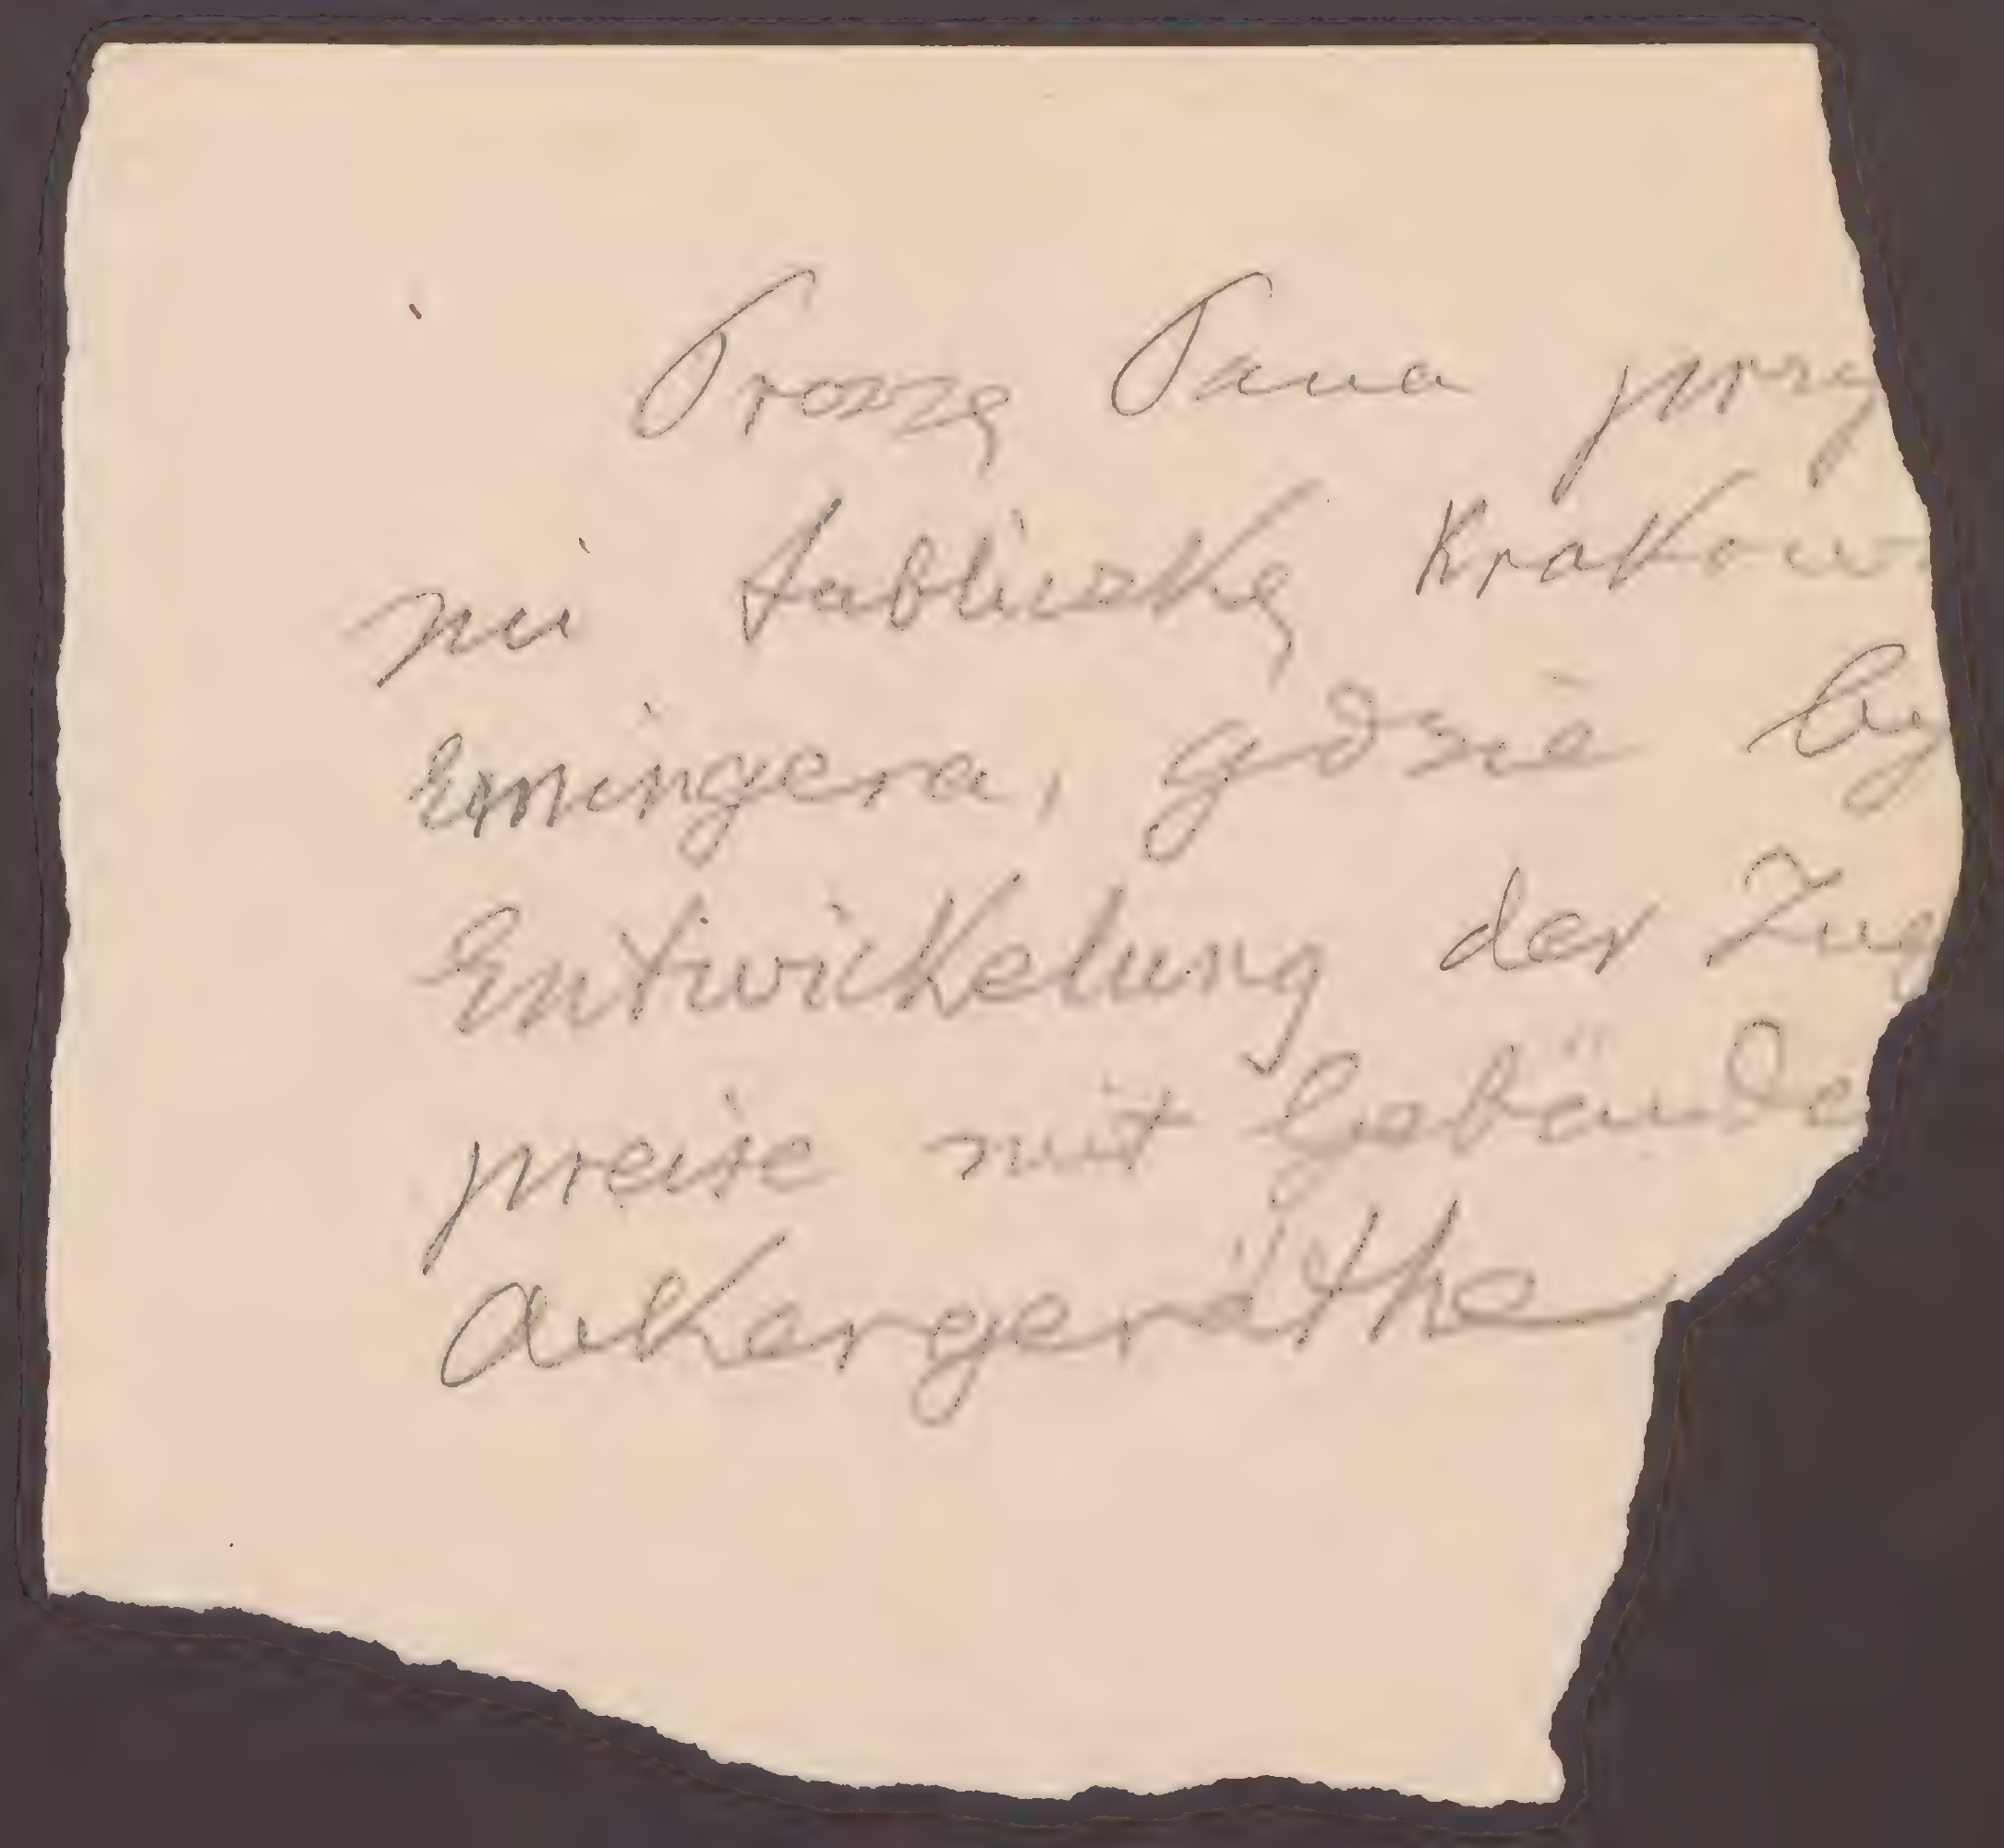 Proszę Pana przy
mi tabliczkę Krakow
Exningera, gdzie by
Entwickelung der Zug
preise mit Gebäude
Ackergeräthe